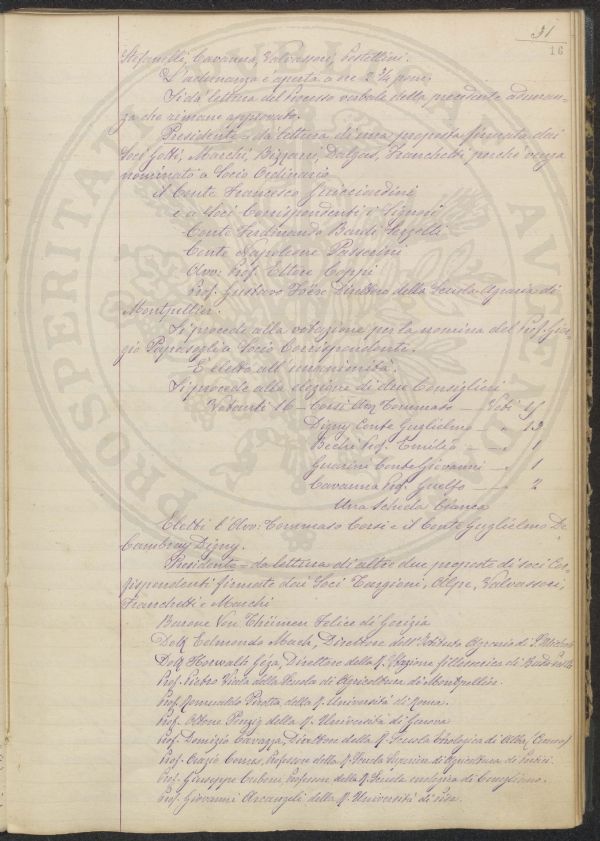 31
16
Stefanelli, Cavanna, Valvassori, Pestellini.
L'adunanza è aperta a ore 2 3/4 pom.
Si dà lettura del Processo verbale della precedente adunan-
za che rimane approvato.
Presidente = dà lettura di una proposta firmata dai
Soci Gotti, Marchi, Bizzarri, Dalgas, Franchetti perchè venga
nominato a Socio Ordinario
il Conte Francesco Guicciardini
e a Soci Corrispondenti i Signori
Conte Ferdinando Bardi Serzelli
Conte Napoleone Passerini
Avv: Prof. Ettore Coppi
Prof. Gustavo Foëx Direttore della Scuola Agraria di
Montpellier.
Si procede alla votazione per la nomina del Prof. Gior-
gio Papasogli a Socio Corrispondente.
È eletto all'unanimità.
Si procede alla elezione di due Consiglieri
Votanti 16 — Corsi Avv. Tommaso — Voti 15
Digny Conte Guglielmo — " 12
Bechi Prof. Emilio — " 1
Guarini Conte Giovanni — " 1
Cavanna Prof. Guelfo — " 2
Una Scheda bianca
Eletti l'Avv: Tommaso Corsi e il Conte Guglielmo De
Cambray Digny.
Presidente = da lettura di altre due proposte di soci Cor-
rispondenti firmate dai Soci Targioni, Alpe, Valvassori,
Franchetti e Marchi
Barone Von Thümen Felice di Gorizia
Dott. Edmondo Mach, Direttore dell'Istituto Agrario di S. Michele
Dott. Horwath Géza, Direttore della R. Stazione fillosserica di Budapest
Prof. Pietro Viala della Scuola di Agricoltura di Montpellier.
Prof. Romualdo Pirotta della R. Università di Roma.
Prof. Ottone Penzig della R. Università di Genova
Prof. Domizio Cavazza, Direttore della R. Scuola Enologica di Alba (Cuneo)
Prof. Orazio Comes, Professore della R. Scuola Superiore di Agricoltura di Portici.
Prof. Giuseppe Cuboni, Professore della R. Scuola enologica di Conegliano.
Prof. Giovanni Arcangeli della R. Università di Pisa.
PROSPERITATI PUBLICAE AUGENDAE